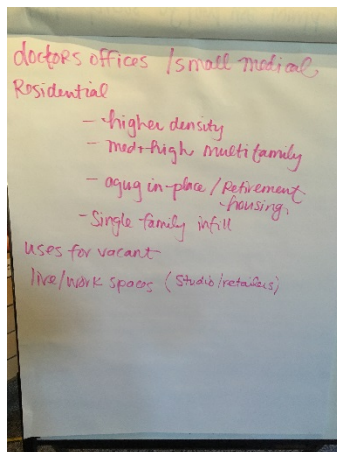 doctors offices / small medical
Residential
- higher density
- med+high multi family
- aging in-place / Retirement
housing.
- Single family infill
uses for vacant
live/work spaces (studio/retailers)